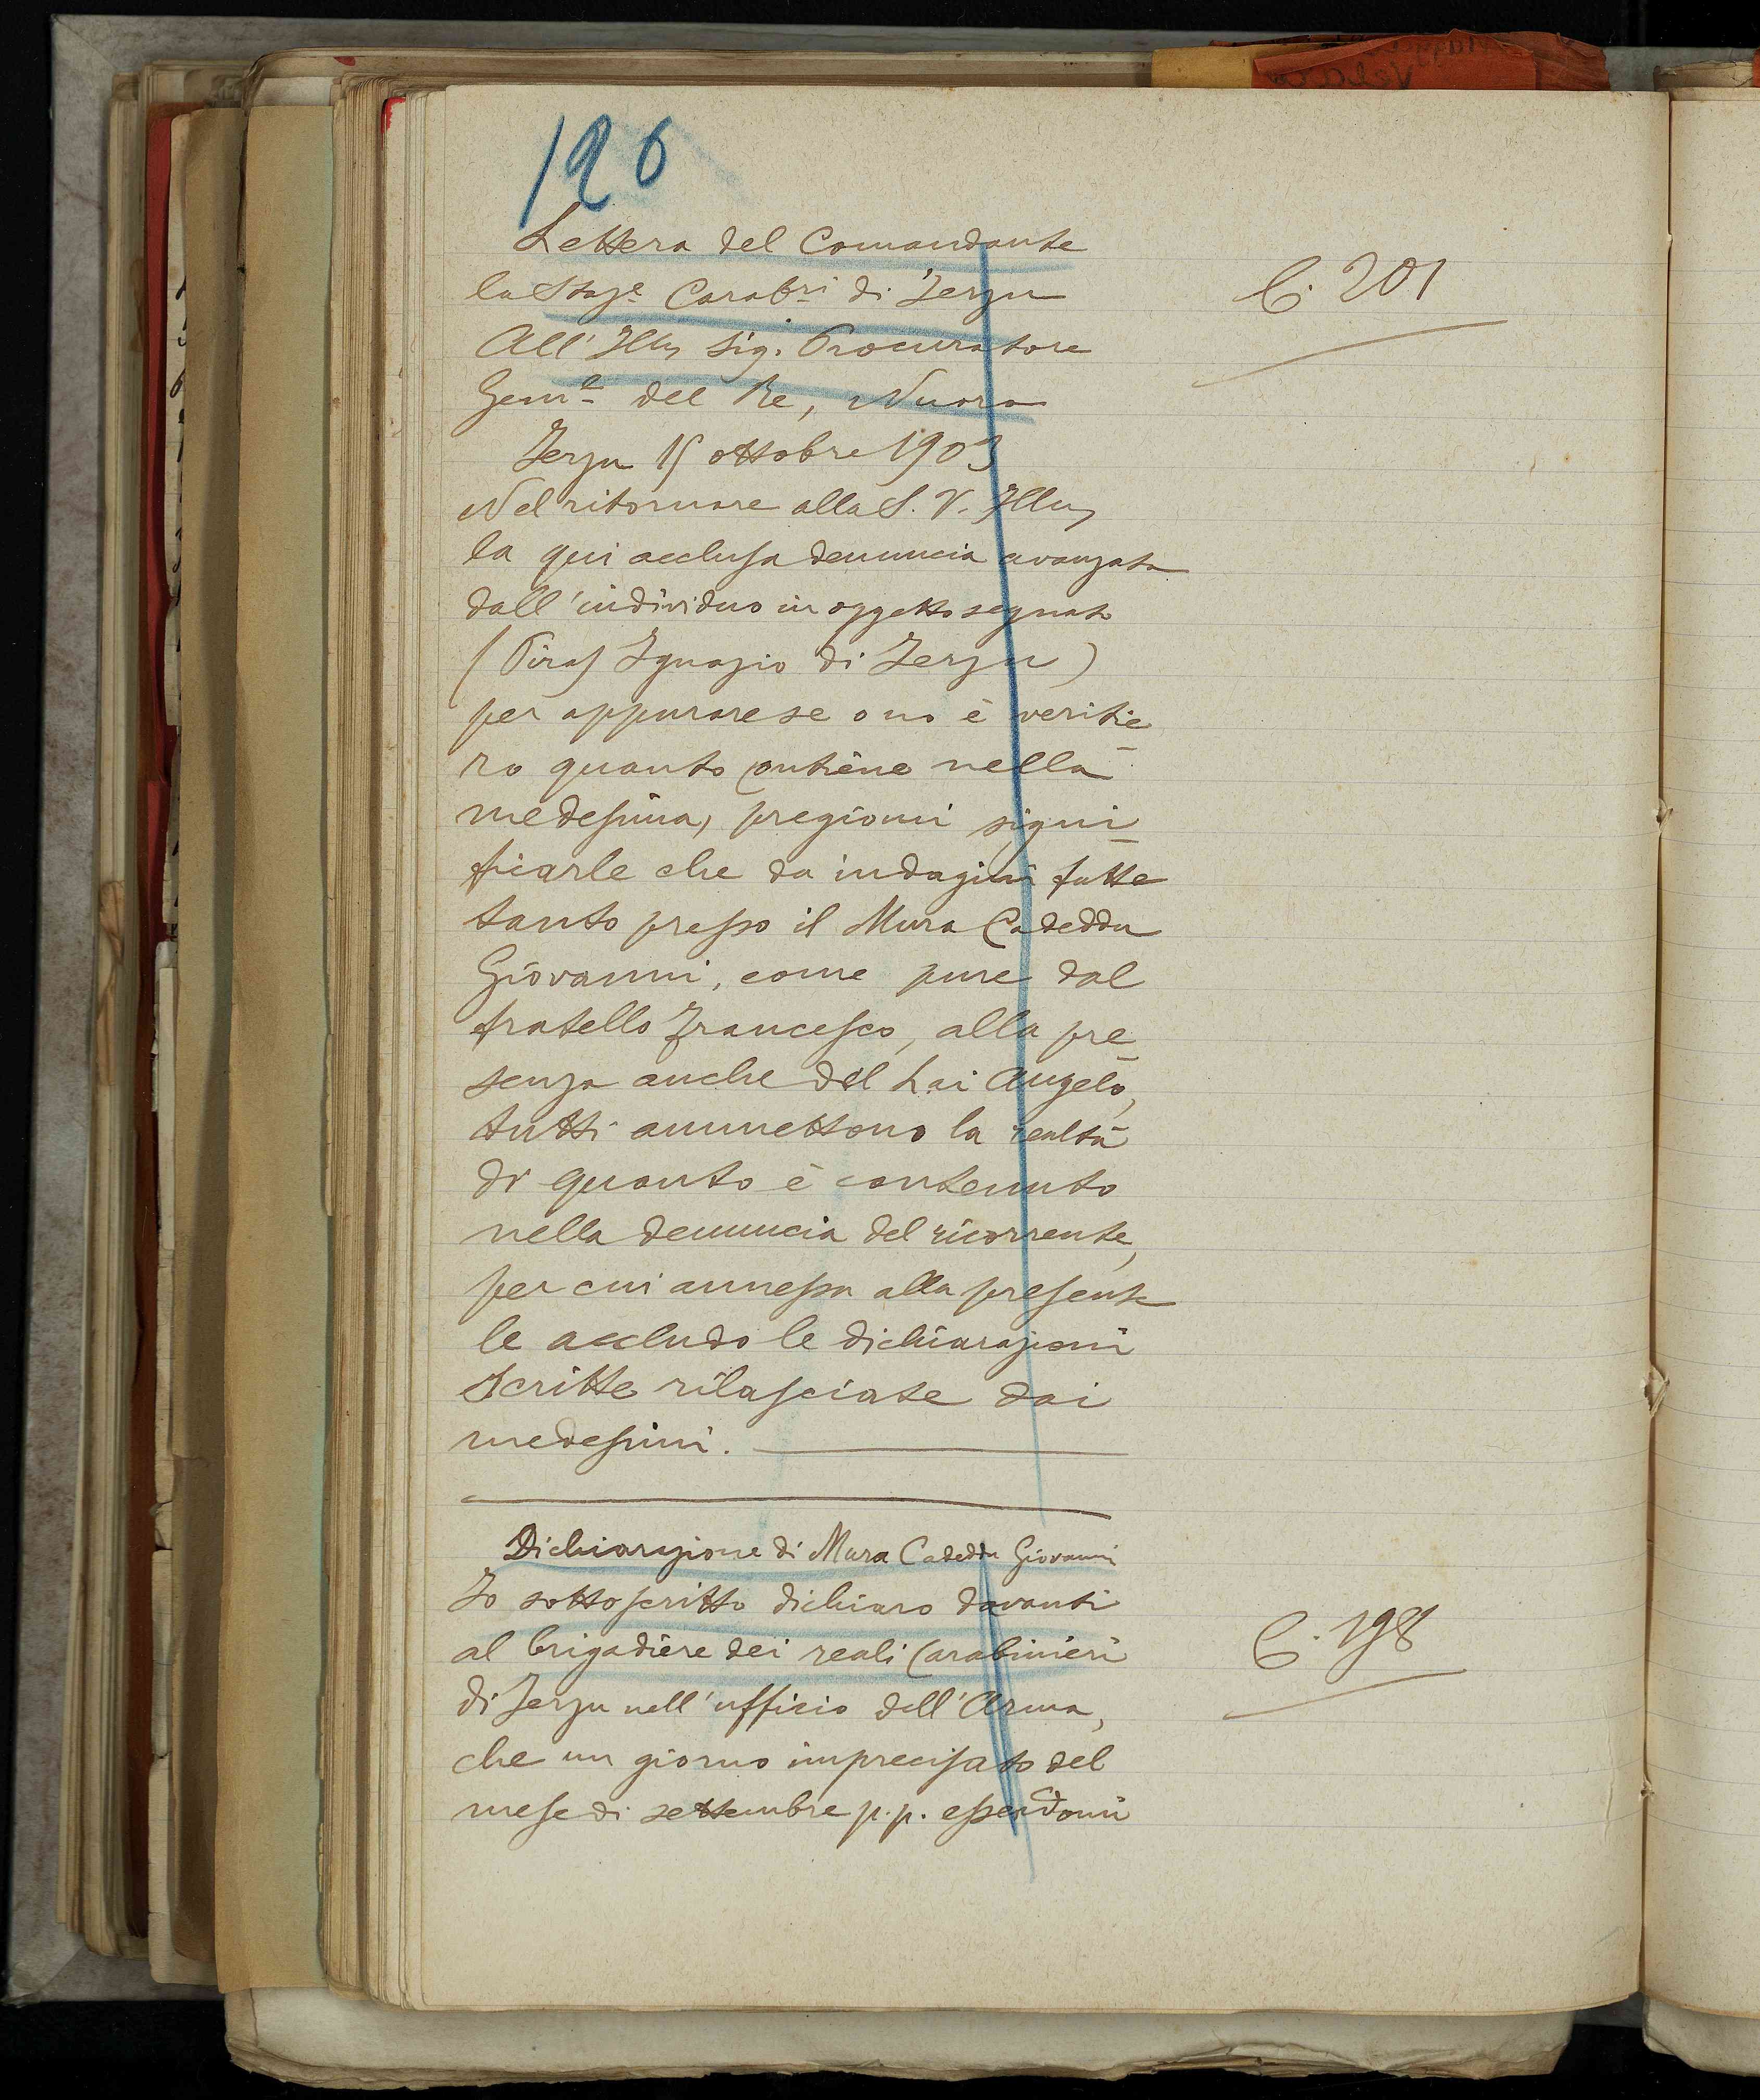 126
Lettera del Comandante
la Staz.e Carab.ri di Jerzu
C. 201
All' Ill.mo Sig. Procuratore
Gen.le del Re, Nuoro
Jerzu 15 ottobre 1903
Nel ritornare alla S. V. Ill.ma
la qui acclusa denuncia avanzata
dall'individuo in oggetto segnato
(Piras Ignazio di Jerzu)
per appurare se o no è veritie
ro quanto contiene nella
medesima, pregiomi signi
ficarle che da indagini fatte
tanto presso il Mura Cadeddu
Giovanni, come pure dal
fratello Francesco, alla pre
senza anche del Lai Angelo,
tutti ammettono la realtà
di quanto è contenuto
nella denuncia del ricorrente,
per cui annessa alla presente
le accludo le dichiarazioni
scritte rilasciate dai
medesimi.
Dichiarazione di Mura Cadeddu Giovanni
Io sottoscritto dichiaro davanti
al brigadiere dei reali Carabinieri
C. 198
di Jerzu nell'ufficio dell'Arma,
che un giorno imprecisato del
mese di settembre p. p. essendomi